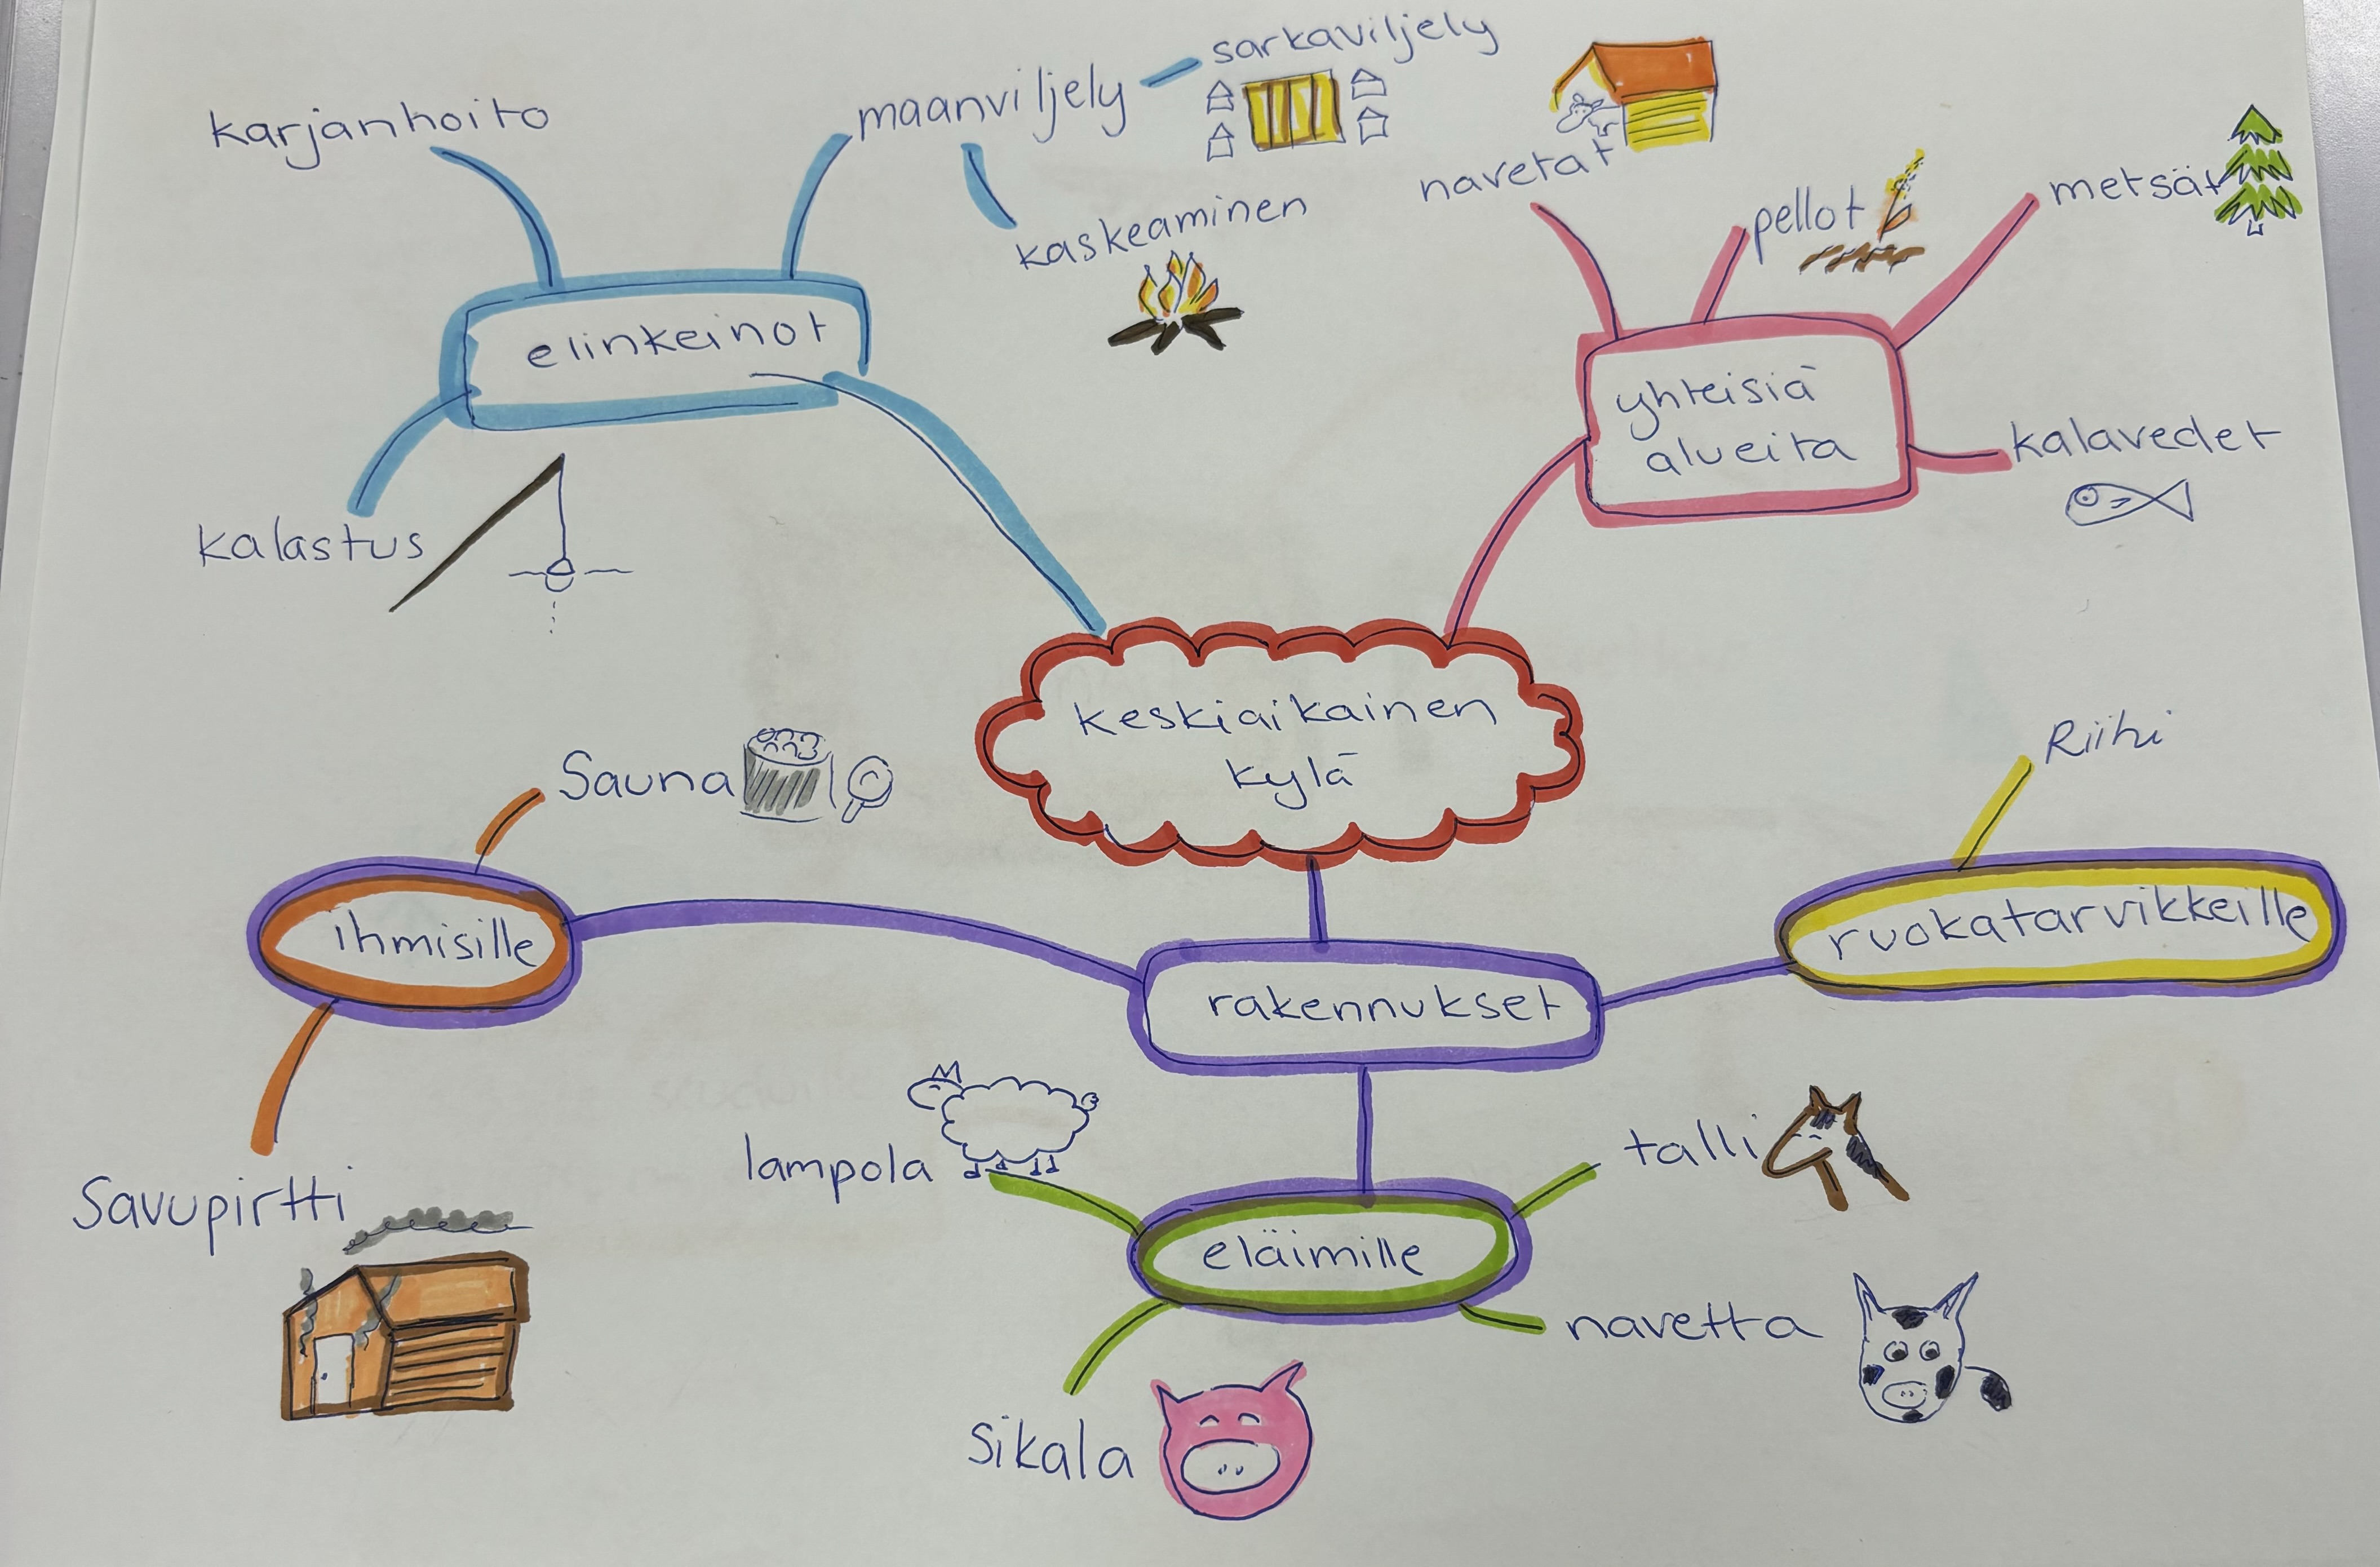 karjanhoito
maanviljely
sarkaviljely
kaskeaminen
elinkeinot
kalastus
navetat
pellot
metsät
yhteisiä
alueita
kalavedet
keskiaikainen
kylä
Sauna
ihmisille
Savupirtti
rakennukset
Riihi
ruokatarvikkeille
lampola
talli
eläimille
navetta
Sikala